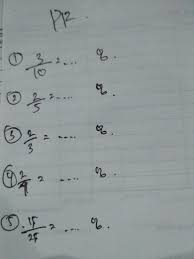 PR.
① 3/10 = .... %.
② 2/5 = .... %.
③ 2/3 = .... %.
④ 2/ = .... %.
⑤ 15/25 = .... %.